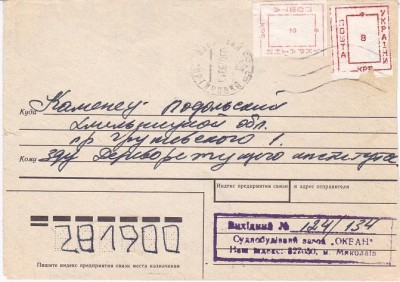 ПОШТА УКРАЇНИ
8
КРБ
Куда Каменец-Подольский
Хмельницкой обл.
пр Грушевского 1.
Кому Зду Дерворежущего института
Индекс предприятия связи и адрес отправителя
281900
Пишите индекс предприятия связи места назначения
Вихідний № 124/134
Суднобудівний завод „ОКЕАН"
Наш індекс: м. Миколаїв